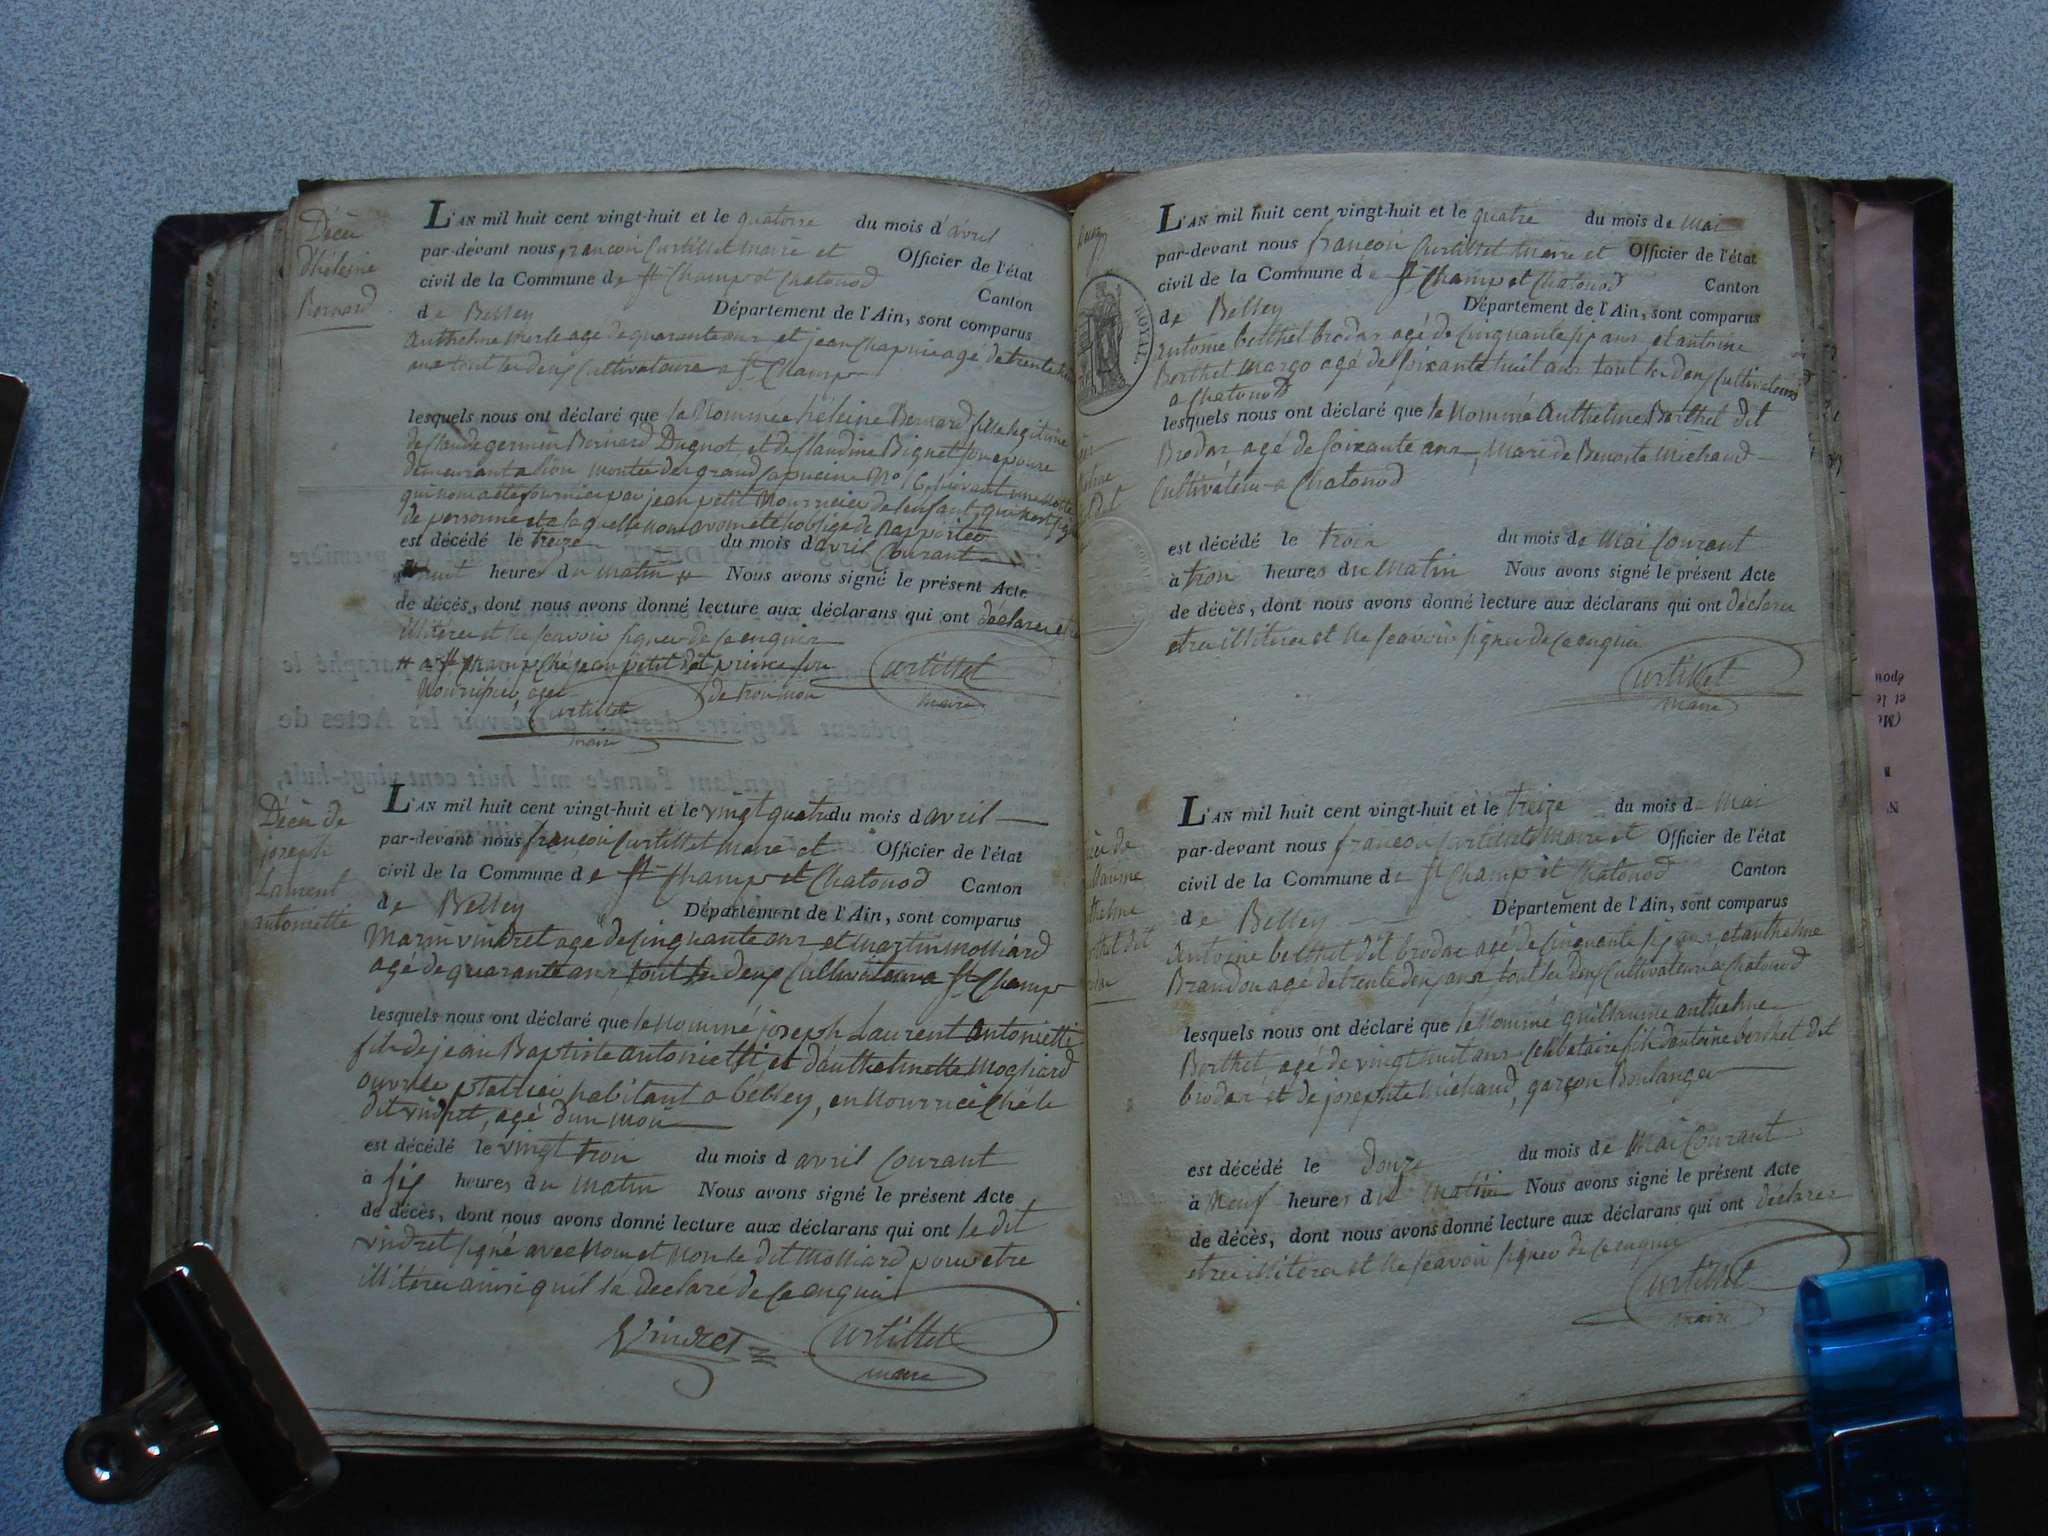 Décès
d'héleine
Bernard
L'AN mil huit cent vingt-huit et le quatorze du mois d'avril
par-devant nous françois Curtillet maire et Officier de l'état
civil de la Commune de St Champ et Chatonod Canton
de Belley Département de l'Ain, sont comparus
anthelme merle agé de quarante ans et jean Chapuis agé de trente
ans tout les deux Cultivateurs a St Champ
lesquels nous ont déclaré que la Nommée héleine Bernard fille legitime
de Claude germain Bernard Dugnot et de Claudine Bignet son epouse
demeurant a lion montée des grand Capucins No 6, suivant une notte
qui nous a été fournie par jean petit Nourricier de l'enfant,
de personne et a la quelle nous avons été obligé de rapporter
est décédé le treize du mois d avril Courant
huit heures du matin # Nous avons signé le présent Acte
de décès, dont nous avons donné lecture aux déclarans qui ont déclarer etre
illitéres et ne scavoir signer de ce enquis
# a St Champ ché jean petit dit prince son Curtillet
Nourricier, agée de trois mois maire
Curtillet
maire
Décès de
joseph
Laurent
antonietti
L'AN mil huit cent vingt-huit et le vingt quatre du mois d avril
par-devant nous françois Curtillet maire et Officier de l'état
civil de la Commune de St Champ et Chatonod Canton
de Belley Département de l'Ain, sont comparus
Marin vindret agé de Cinquante ans et martin molliard
agé de quarante ans tout les deux Cultivateurs a St Champ
lesquels nous ont déclaré que le Nommé joseph Laurent Antonietti
fils de jean Baptiste antonietti et d'anthelmette Mogliard
ouvrier platrier, habitant a Belley, en Nourrice Ché le
dit vindret, agé d'un mois
est décédé le vingt trois du mois d avril Courant
à six heures du matin Nous avons signé le présent Acte
de décès, dont nous avons donné lecture aux déclarans qui ont le dit
vindret signé avec Nous et Non le dit Molliard pour etre
illitéré ainsi qu'il l'a declaré de ce enquis
Vindret Curtillet
maire
L'AN mil huit cent vingt-huit et le quatre du mois de mai
par-devant nous françois Curtillet maire et Officier de l'état
civil de la Commune de St Champ et Chatonod Canton
de Belley Département de l'Ain, sont comparus
ROYAL
antoine berthet brodar agé de Cinquante six ans et antoine
Berthet margo agé de soixante huit ans tout les deux Cultivateurs
a Chatonod
lesquels nous ont déclaré que le Nommé Anthelme Berthet dit
Brodar agé de soixante ans, Mari de Benoite Michaud
Cultivateur a Chatonod
est décédé le trois du mois de mai Courant
à trois heures du Matin Nous avons signé le présent Acte
de décès, dont nous avons donné lecture aux déclarans qui ont déclarer
etre illitéres et Ne scavoir signer de ce enquis
Curtillet
maire
L'AN mil huit cent vingt-huit et le treize du mois de Mai
par-devant nous françois Curtillet maire et Officier de l'état
civil de la Commune de St Champ et Chatonod Canton
de Belley Département de l'Ain, sont comparus
Antoine berthet dit brodar agé de Cinquante six ans, et anthelme
Brandon agé de trente deux ans tout les deux Cultivateurs a Chatonod
lesquels nous ont déclaré que le Nommé guillaume anthelme
Berthet agé de vingt huit ans Célibataire fils d'antoine berthet dit
brodar et de josephte michaud, garçon Boulanger
est décédé le douze du mois de Mai Courant
à Neuf heures du Matin Nous avons signé le présent Acte
de décès, dont nous avons donné lecture aux déclarans qui ont déclarer
etre illitéres et Ne scavoir signer de ce enquis
Curtillet
maire